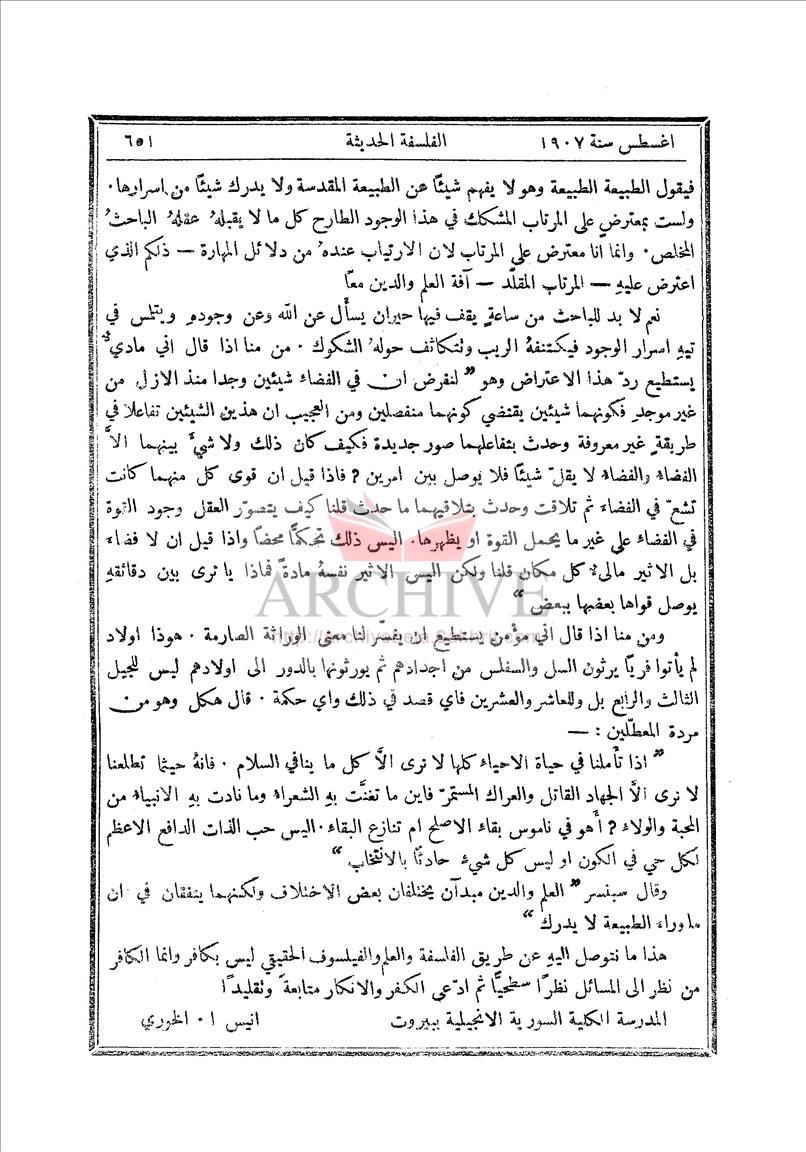 اغسطس سنة ١٩٠٧ الفلسفة الحديثة ٦٥١
فيقول الطبيعة الطبيعة وهو لا يفهم شيئًا عن الطبيعة المقدسة ولا يدرك شيئًا من اسرارها.
ولست بمعترض على المرتاب المشكك في هذا الوجود الطارح كل ما لا يقبلهُ عقلهُ الباحثُ
المخلص. وانما انا معترض على المرتاب لان الارتياب عندهُ من دلائل المهارة — ذلكم الذي
اعترض عليهِ — المرتاب المقلّد — آفة العلم والدين معًا
نعم لا بد للباحث من ساعةٍ يقف فيها حيران يسأَل عن الله وعن وجودهِ ويتلمس في
تيهِ اسرار الوجود فيكتنفهُ الريب وتتكاثف حولهُ الشكوك. من منا اذا قال اني ماديٌّ
يستطيع ردّ هذا الاعتراض وهو " لنفرض ان في الفضاء شيئين وجدا منذ الازل من
غير موجدٍ فكونهما شيئين يقتضي كونهما منفصلين ومن العجيب ان هذين الشيئين تفاعلا في
طريقةٍ غير معروفة وحدث بتفاعلهما صور جديدة فكيف كان ذلك ولا شيءَ بينهما الاَّ
الفضاءُ والفضاءُ لا يقلّ شيئًا فلا يوصل بين امرين ? فاذا قيل ان قوى كل منهما كانت
تشعّ في الفضاء ثم تلاقت وحدث بتلاقيهما ما حدث قلنا كيف يتصوّر العقل وجود القوة
في الفضاء على غير ما يحمل القوة او يظهرها. اليس ذلك تحكمًا محضًا واذا قيل ان لا فضاء
بل الاثير مالئ كل مكان قلنا ولكن اليس الاثير نفسهُ مادةً فماذا يا ترى بين دقائقهِ
يوصل قواها بعضها ببعض "
ARCHIVE
ومن منا اذا قال اني مؤمن يستطيع ان يفسر لنا معنى الوراثة الصارمة. هوذا اولاد
لم يأتوا فريًّا يرثون السل والسفلس من اجدادهم ثم يورثونها بالدور الى اولادهم ليس للجيل
الثالث والرابع بل وللعاشر والعشرين فاي قصد في ذلك واي حكمة. قال هكل وهو من
مردة المعطّلين : —
" اذا تأملنا في حياة الاحياء كلها لا نرى الاَّ كل ما ينافي السلام. فانهُ حيثما تطلعنا
لا نرى الاَّ الجهاد القاتل والعراك المستمرّ فاين ما تغنَّت بهِ الشعراءُ وما نادت بهِ الانبياءُ من
المحبة والولاء ? أَهو في ناموس بقاء الاصلح ام تنازع البقاء. اليس حب الذات الدافع الاعظم
لكل حي في الكون او ليس كل شيءٍ حادثًا بالانتخاب "
وقال سبنسر " العلم والدين مبدآن يختلفان بعض الاختلاف ولكنهما يتفقان في ان
ما وراء الطبيعة لا يدرك "
هذا ما نتوصل اليهِ عن طريق الفلسفة والعلم والفيلسوف الحقيقي ليس بكافر وانما الكافر
من نظر الى المسائل نظرًا سطحيًّا ثم ادّعى الكفر والانكار متابعةً وتقليدًا
المدرسة الكلية السورية الانجيلية ببيروت انيس ا. الخوري